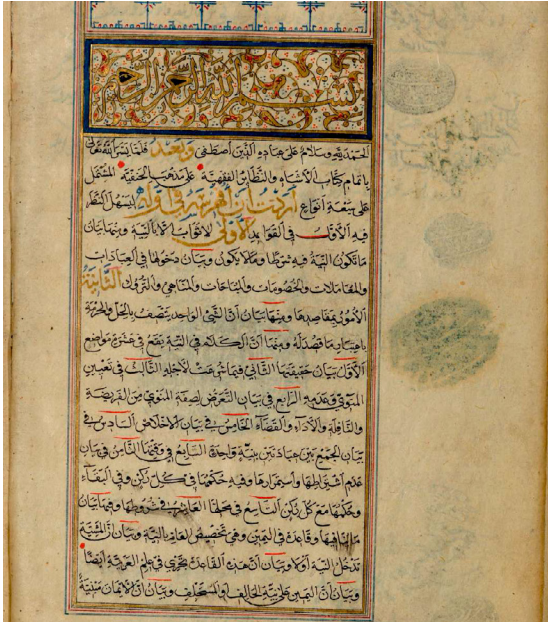 بسم الله الرحمن الرحيم
الحمد لله وسلام على عباده الذين اصطفى وبعد فلما يسر الله تعالى
باتمام كتاب الاشباه والنظائر الفقهية على مذهب الحنفية المشتمل
على سبعة انواع اردت ان افهرسه في اوله ليسهل النظر
فيه الاول في القواعد الاولى لا ثواب الا بالنية وفيها بيان
ما تكون النية فيه شرطا وما لا يكون وبيان دخولها في العبادات
والمعاملات والخصومات والمباحات والمناهي والتروك الثانية
الامور بمقاصدها وفيها بيان ان الشئ الواحد يتصف بالحل والحرمة
باعتبار ما قصد له وفيها ان الكلام في النية يقع في عشرة مواضع
الاول بيان حقيقتها الثاني فيما شرعت لاجله الثالث في تعيين
المنوى وعدمه الرابع في بيان التعرض لصفة المنوى من الفريضة
والنافلة والاداء والقضاء الخامس في بيان الاخلاص السادس في
بيان الجمع بين عبادتين بنية واحدة السابع في وقتها الثامن في بيان
عدم اشتراطها واستمرارها وفيه حكمها في كل ركن وفي البقاء
وحكمها مع كل ركن التاسع في محلها العاشر في شروطها وفيها بيان
ما ينافيها وقاعدة في اليمين وهي تخصيص العام بالنية وبيان ان المشية
تدخل النية أو لا وبيان ان هذه القاعدة تجري في علم العربية ايضا
وبيان ان اليمين على نية الحالف او المستحلف وبيان ان الايمان مبنية